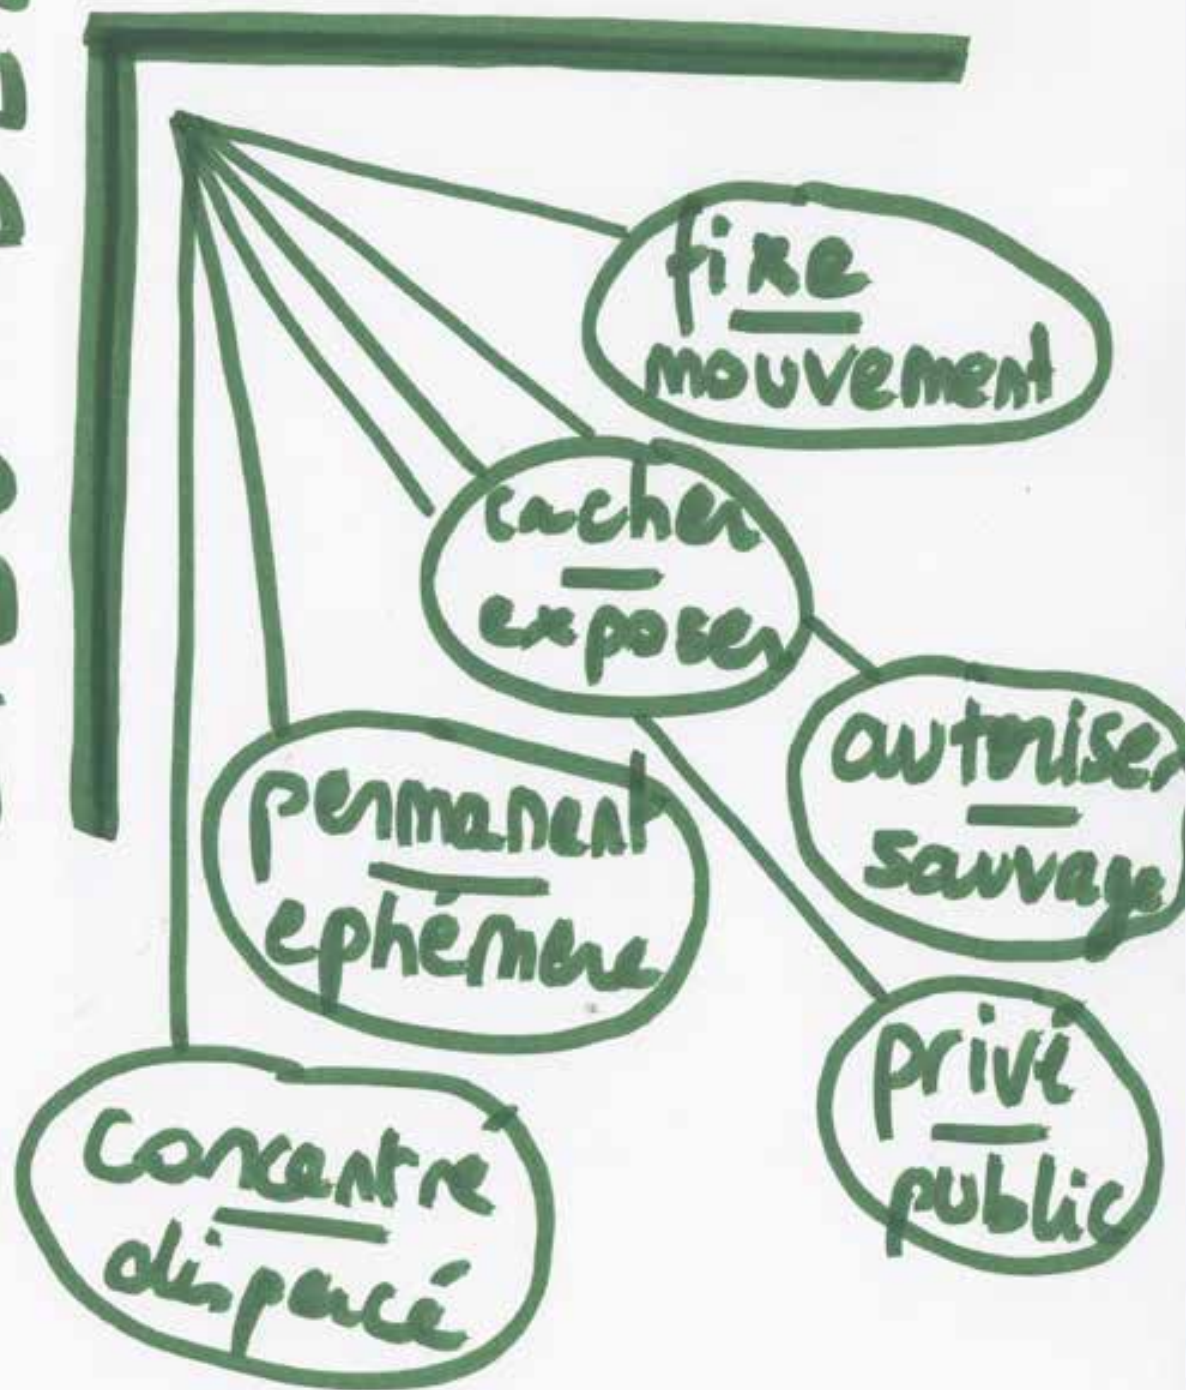 fixe
mouvement
cacher
exposer
autoriser
sauvage
permanent
ephémère
privé
public
concentré
dispercé